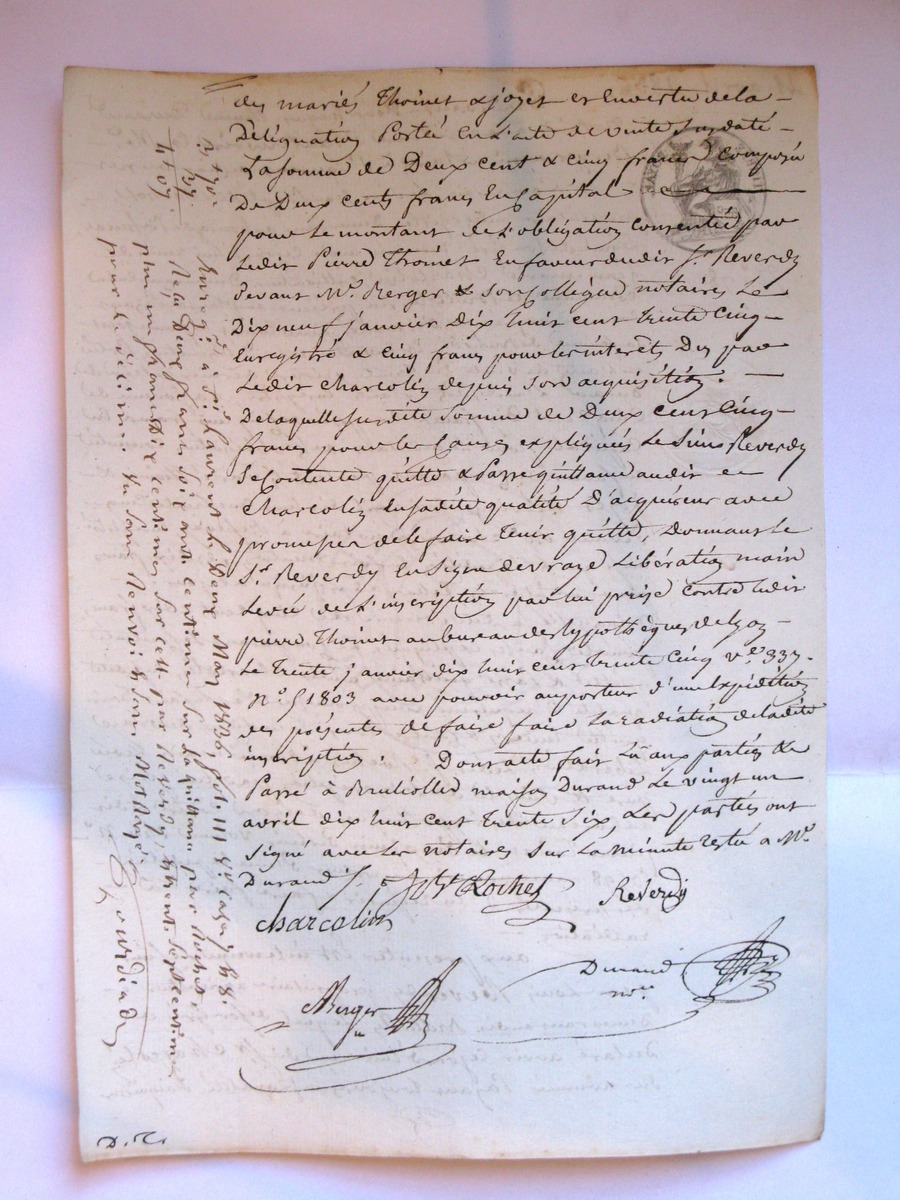 des mariés Thoinet & joyet et En vertu de la
Déléguation Portée En l'acte de vente sus daté
La somme de Deux cent & cinq francs composée
De Deux cents francs En capital
pour le montant de l'obligation consentie par
Ledit Pierre Thoinet En faveur dudit Sr. Reverdy
devant Me. Berger & son collègue notaires Le
Dix neuf janvier Dix huit cent trente Cinq
Enregistré & cinq francs pour les intérêts Dus par
Ledit Charcolin depuis son acquisition.
De laquelle susdite somme de Deux cent Cinq
francs pour les Causes expliquées Le Sieur Reverdy
Se Contente quitte & Passe quittance audit
Charcolin En sadite qualité D'acquéreur avec
promesse de le faire tenir quitte, Donnant Le
Sr. Reverdy En signe de vraye Libération main
Levée de l'inscription par lui prise contre ledit
pierre Thoinet au bureau des hypothèques de Lyon
Le trente janvier dix huit cent trente Cinq vol. 337.
No. 51803 avec pouvoir au porteur d'une Expédition
des présentes de faire faire La radiation de ladite
inscription. Dont acte fait Lu aux parties &
Passé à Brulliolles maison Durand Le vingt un
avril dix huit cent trente Six Les parties ont
Signé avec Les notaires Sur La minute restée à Me.
Durand
Rochet
Reverdy
charcolin
Durand
nre
Berger
Enregé à St Laurent le Douze May 1836, fol. 111
Reçu Deux francs soixante centimes sur la quittance par Rochet,
plus un franc Dix centimes sur celle par Reverdy, & trente sept centimes
pour le décime. Un sans Renvoi & sans Mot Rayé.